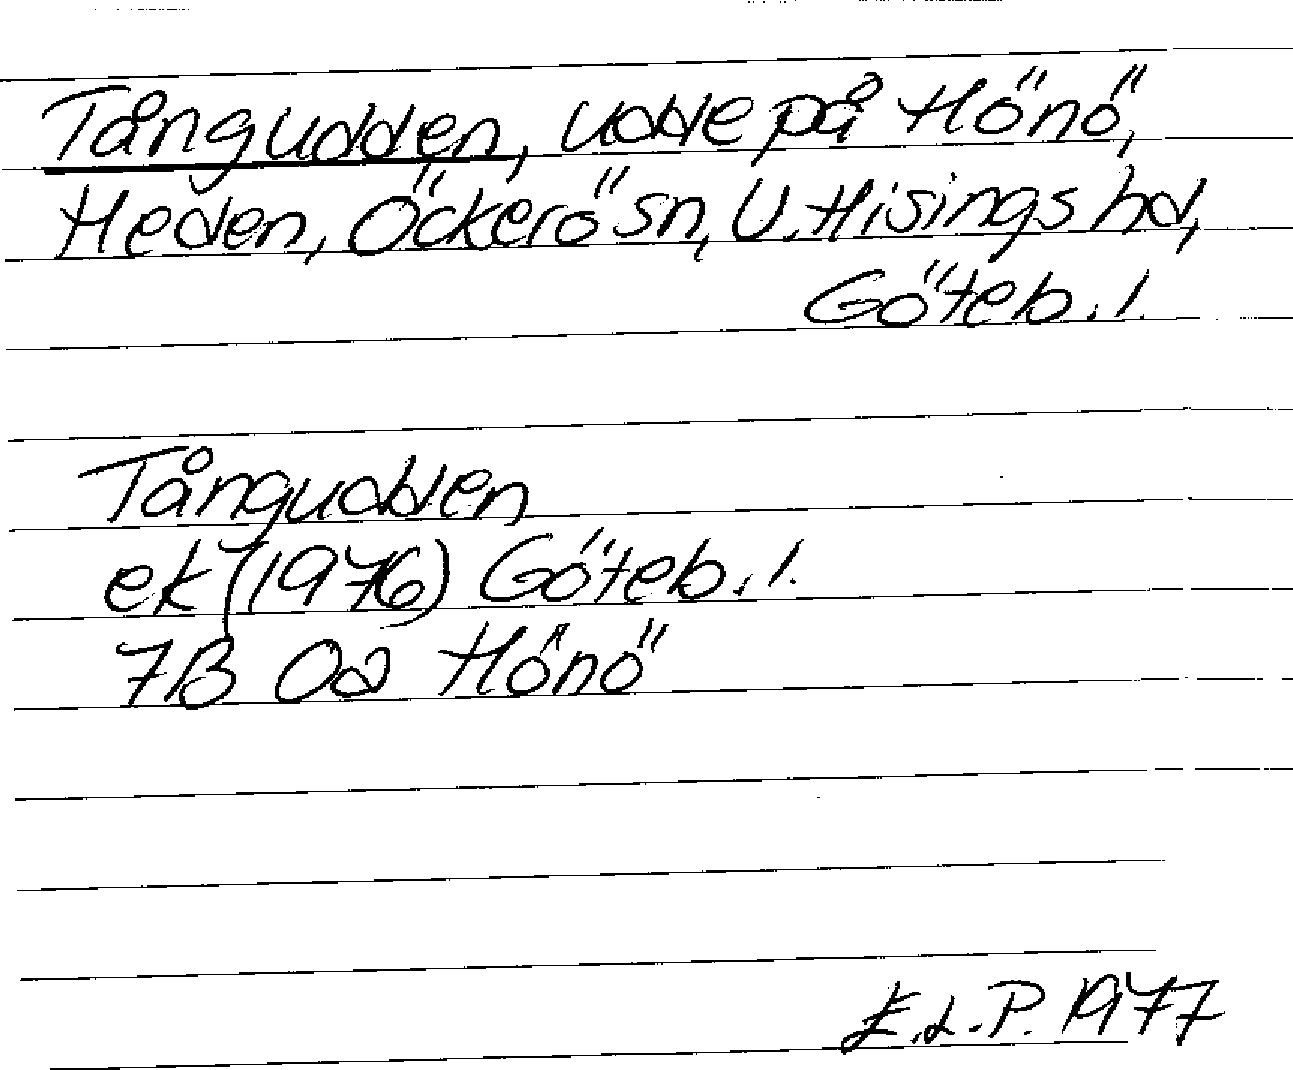 Tångudden, udde på Hönö,
Heden, Öckerö sn, V. Hisings hd,
Göteb. l.
Tångudden
ek (1976) Göteb. l.
7B 0a Hönö
E.L.P. 1977